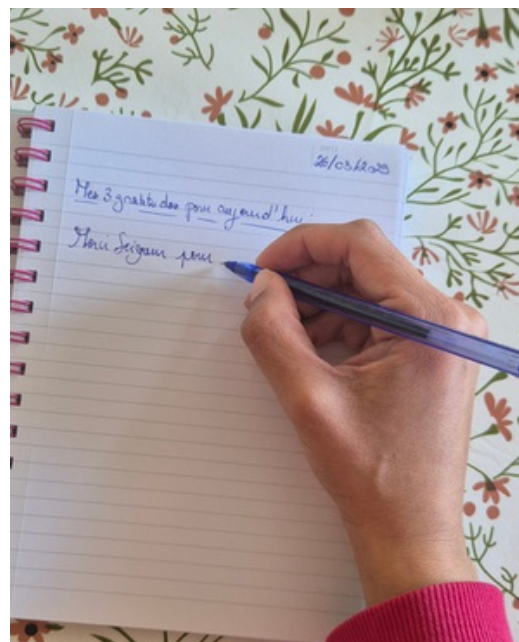 26/03/2025
Mes 3 gratitudes pour aujourd'hui :
Merci Seigneur pour